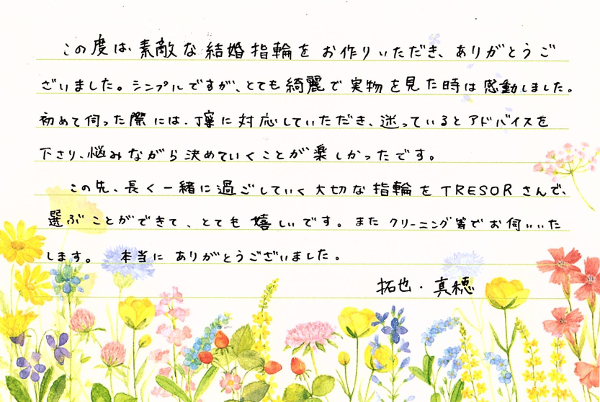 この度は、素敵な結婚指輪をお作りいただき、ありがとうご
ざいました。シンプルですが、とても綺麗で実物を見た時は感動しました。
初めて伺った際には、丁寧に対応していただき、迷っているとアドバイスを
下さり、悩みながら決めていくことが楽しかったです。
この先、長く一緒に過ごしていく大切な指輪をTRESORさんで、
選ぶことができて、とても嬉しいです。またクリーニング等でお伺いいた
します。 本当にありがとうございました。
拓也・真穂